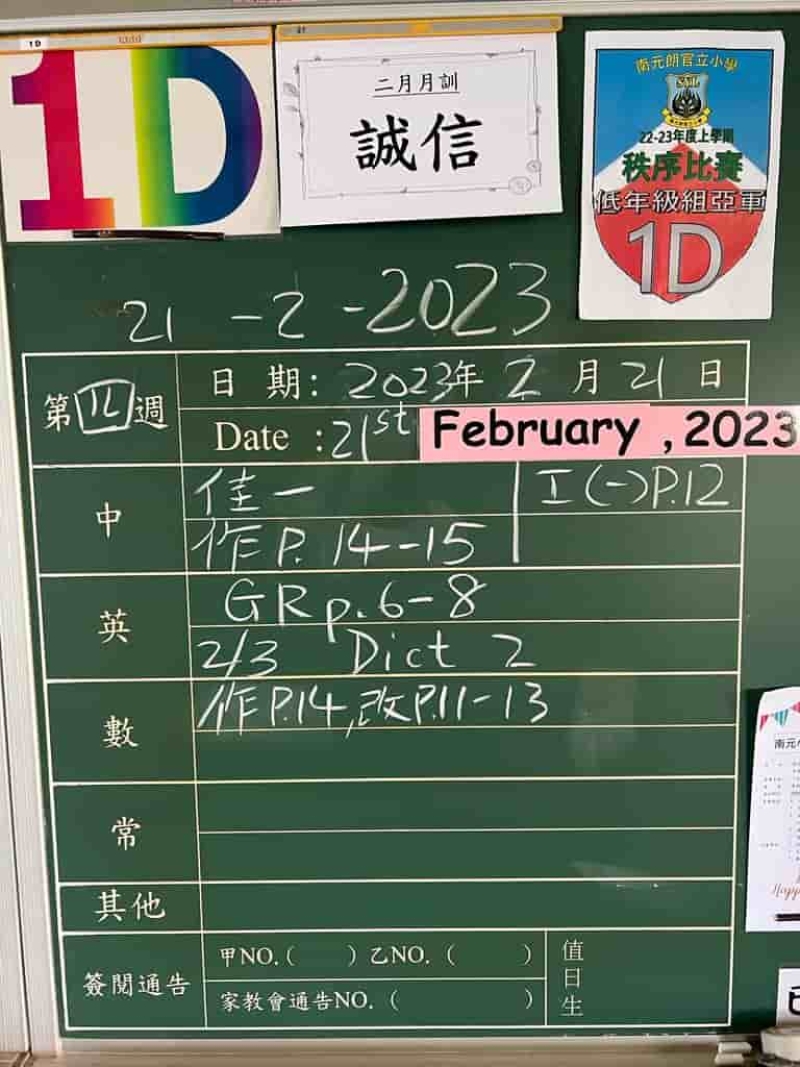 1D
1D
二月月訓
誠信
南元朗官立小學
22-23年度上學期
秩序比賽
低年級組亞軍
1D
21 - 2 - 2023
第四週
日期: 2023年2月21日
Date :21st February , 2023
中
佳一
I(一)P.12
作P. 14-15
英
GR p.6-8
2/3 Dict 2
數
作P.14,改P.11-13
常
其他
簽閱通告
甲NO.( ) 乙NO. ( )
家教會通告NO. ( )
值日生
南元